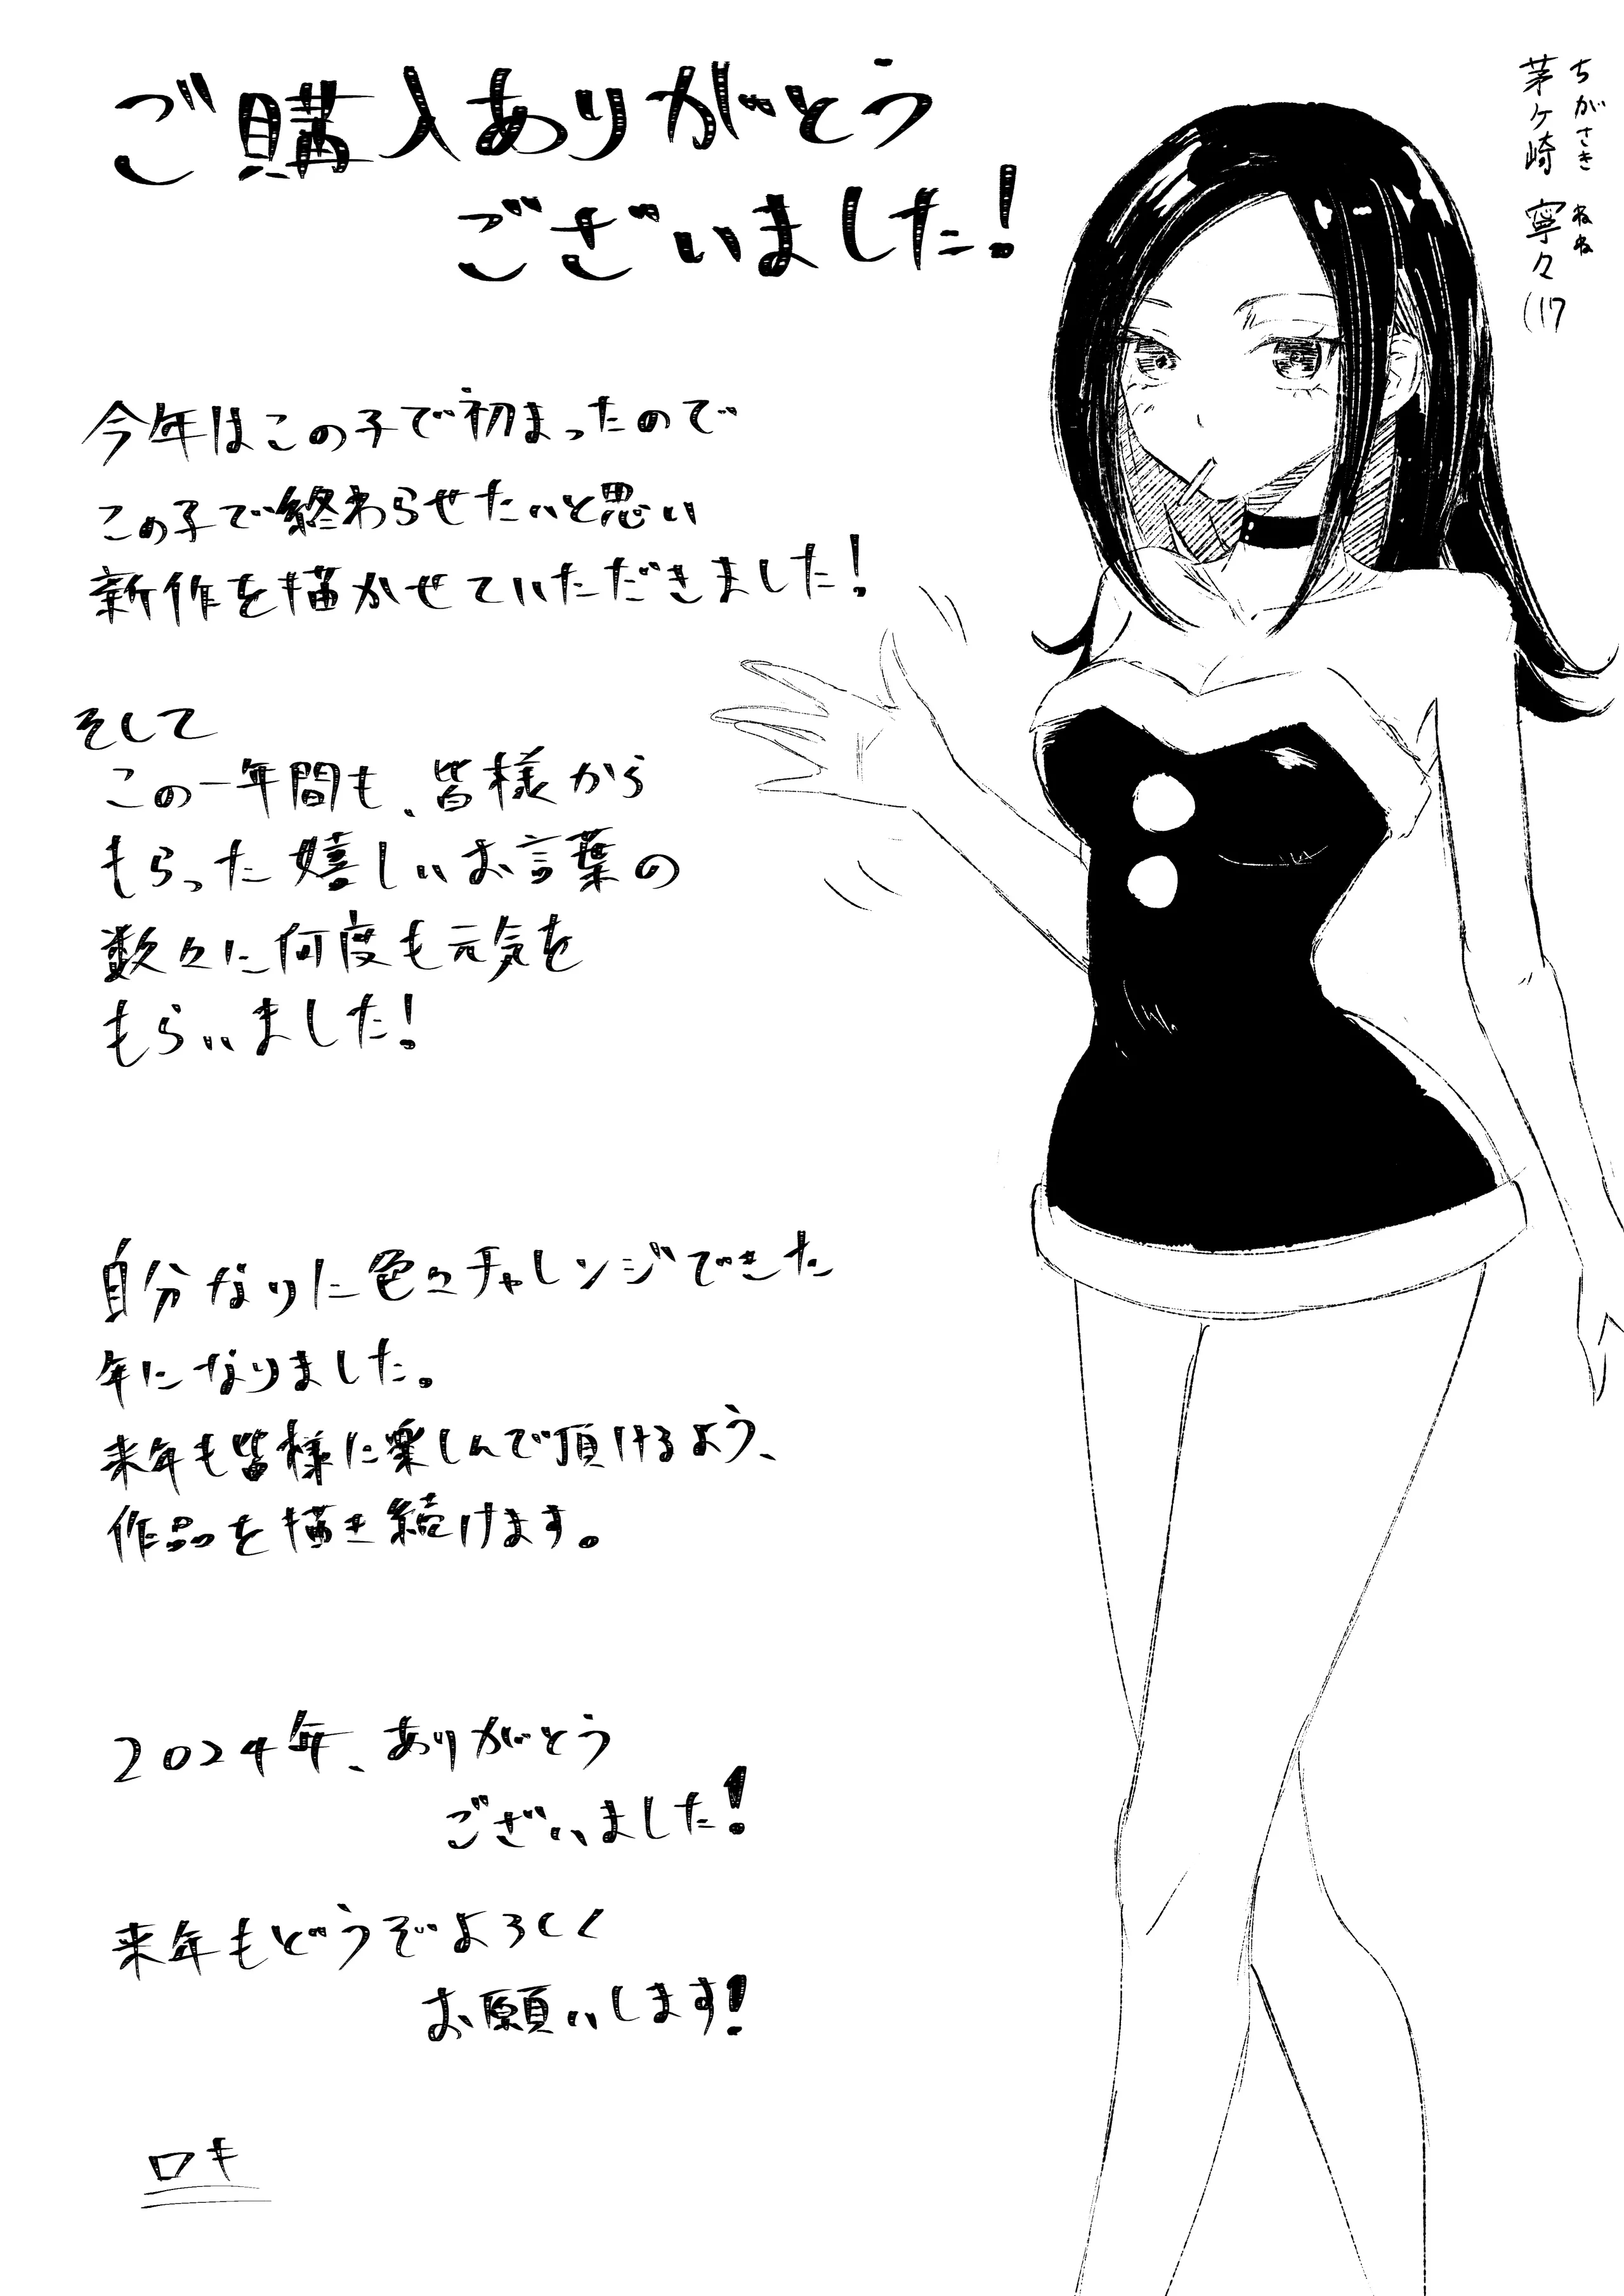 ご購入ありがとう
ございました!
ちがさき ねね
茅ヶ崎 寧々(17
今年はこの子で初まったので
この子で終わらせたいと思い
新作を描かせていただきました!
そして
この一年間も、皆様から
もらった嬉しいお言葉の
数々に何度も元気を
もらいました!
自分なりに色々チャレンジできた
年になりました。
来年も皆様に楽しんで頂けるよう、
作品を描き続けます。
2024年、ありがとう
ございました!
来年もどうぞよろしく
お願いします!
ロキ